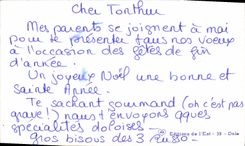 Cher Tonthon
Mes parents se joignent à moi
pour te présenter tous nos voeux
à l'occasion des fêtes de fin
d'année.
Un joyeux Noël une bonne et
Sainte Année.
Te sachant gourmand (oh c'est pas
grave!) nous t'envoyons qques
spécialités doloises.
Gros bisous des 3
de l'Est - 39 - Dole